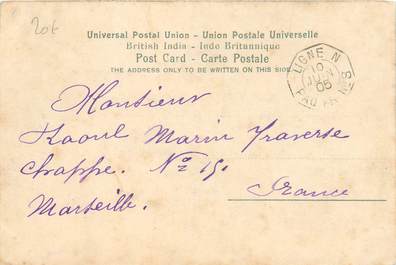 206
Universal Postal Union - Union Postale Universelle
British India - Indo Britannique
Post Card - Carte Postale
THE ADDRESS ONLY TO BE WRITTEN ON THIS SIDE.
LIGNE N
10
JUIN
05
PAQ. FR. Nº5
Monsieur
Raoul Marin Traverse
Chappe. No 15.
Marseille. France